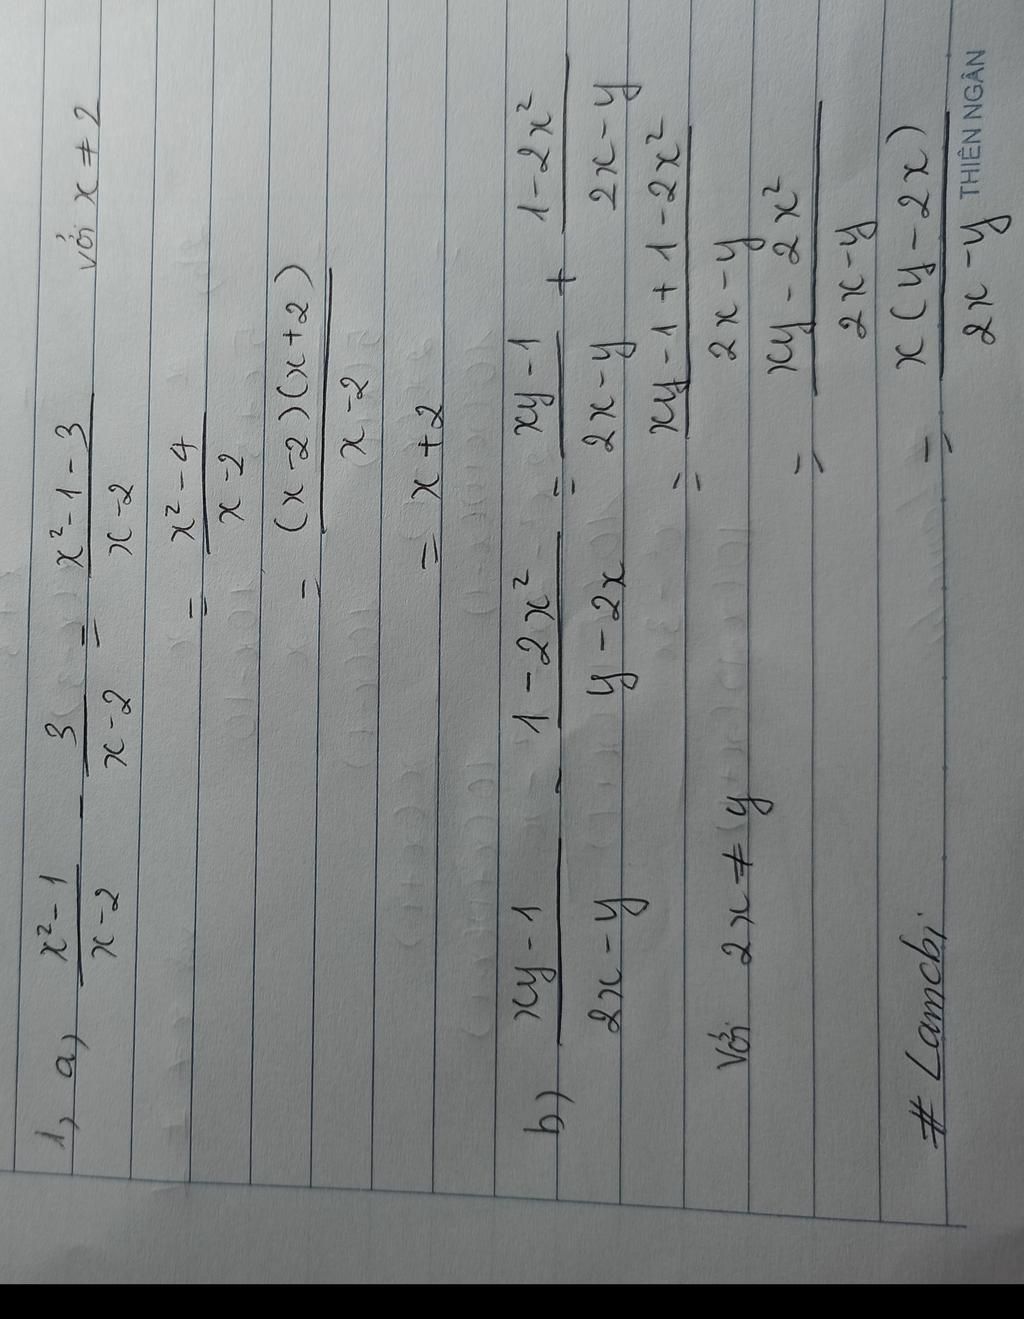 1, a) \frac{x²-1}{x-2} - \frac{3}{x-2} = \frac{x²-1-3}{x-2} với x ≠ 2
= \frac{x²-4}{x-2}
- \frac{(x-2)(x+2)}{x-2}
= x+2
b) \frac{xy-1}{2x-y} - \frac{1-2x²}{y-2x} = \frac{xy-1}{2x-y} + \frac{1-2x²}{2x-y}
= \frac{xy-1+1-2x²}{2x-y}
Với 2x ≠ y
= \frac{xy-2x²}{2x-y}
= \frac{x(y-2x)}{2x-y}
# Lamcbi
THIÊN NGÂN